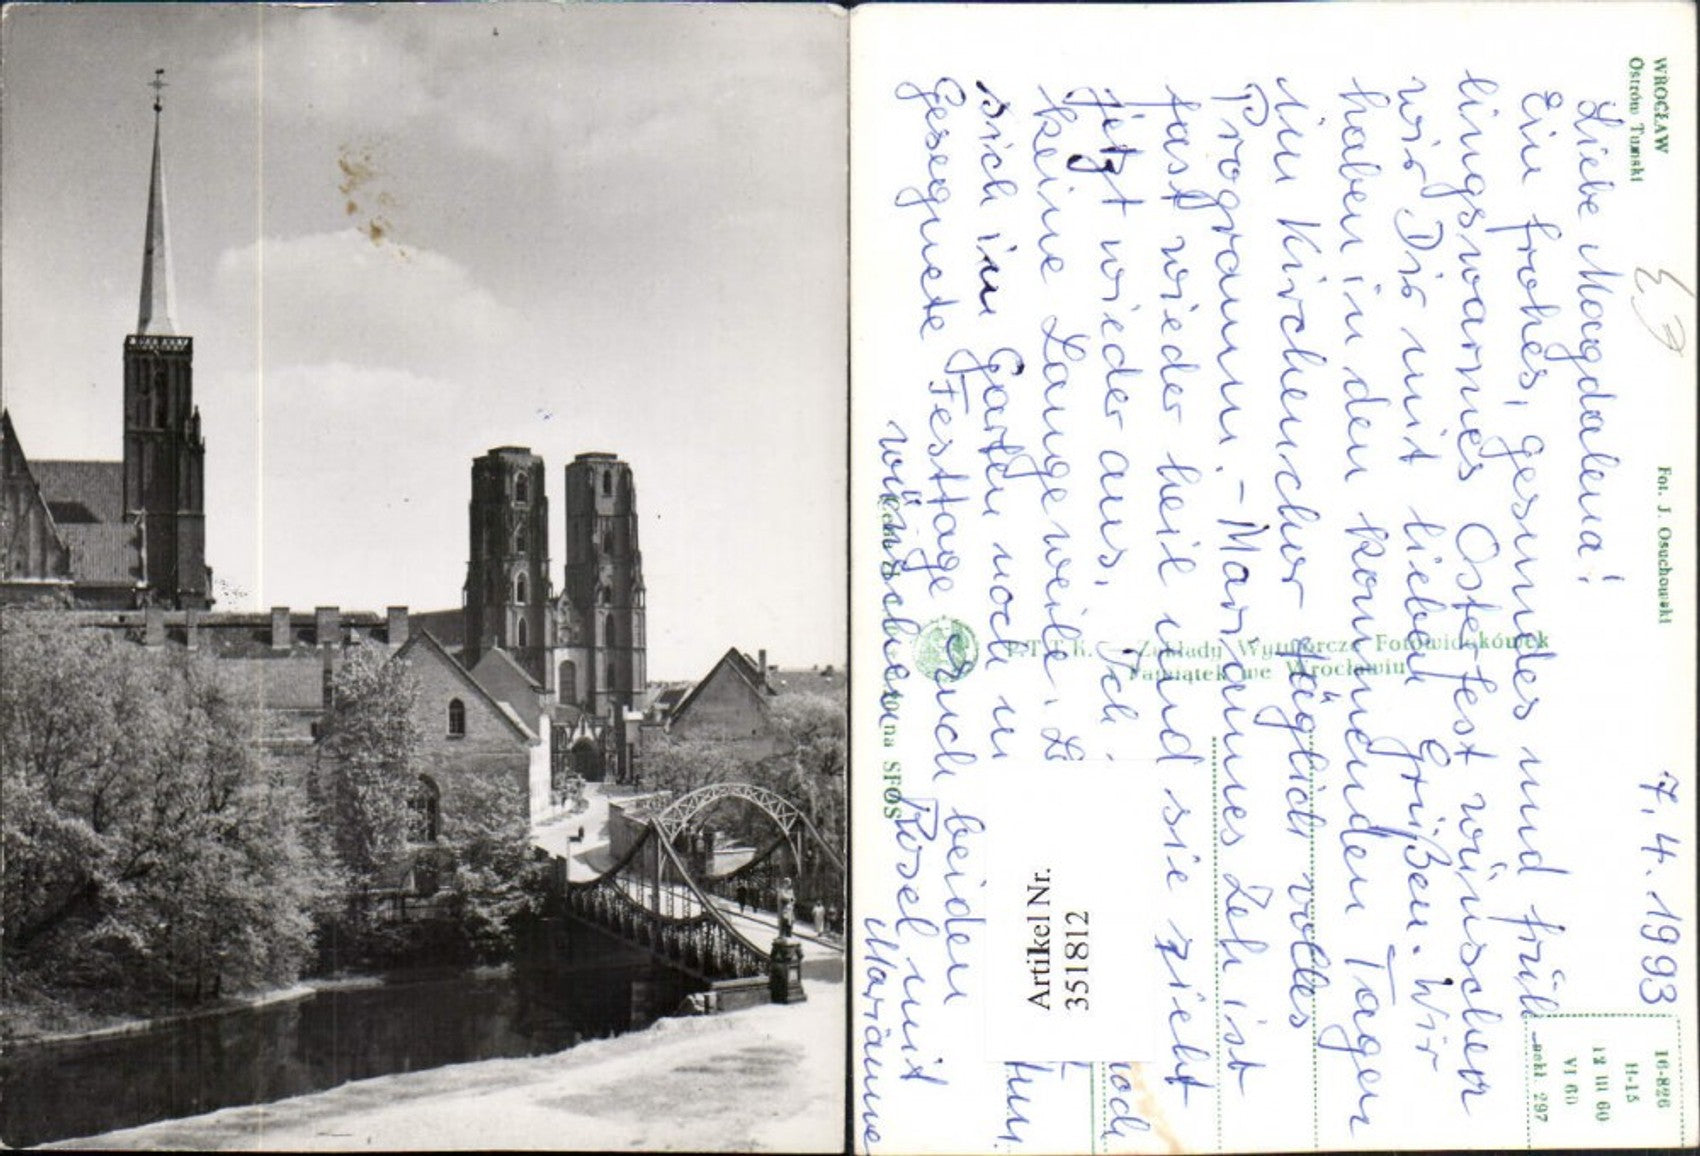 WROCŁAW
Ostrów Tumski
Fot. J. Osuchowski
7.4.1993
Liebe Magdalena!
Ein frohes, gesundes und früh-
lingswarmes Osterfest wünschen
wir Dir mit lieben Grüßen. Wir
haben in den kommenden Tagen
im Kirchenchor täglich volles
Programm. – Mariannes Zeh ist
fast wieder heil und sie zieht
jetzt wieder aus. Ich
keine Langeweile.
sich im Garten noch tun.
Gesegnete Festtage Euch beiden
wünschen Rosel mit
Marianne
P.T.T.K. — Zakłady Wytwórcze Fotowidokówek
i Pamiątek we Wrocławiu
na SFOS
16-826
H-15
12 III 60
VI 60
nakł. 297
Artikel Nr.
351812